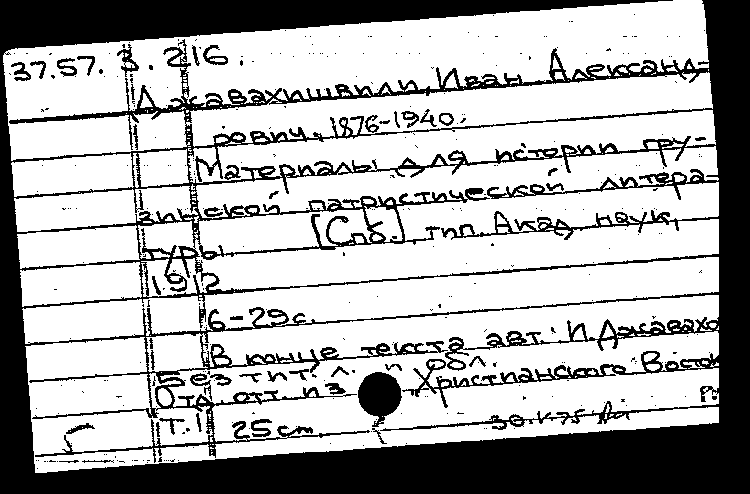 37.57. 3. 216.
Джавахишвили, Иван Александ-
рович, 1876-1940.
Материалы для истории гру-
зинской патристической литера-
туры. [Спб.], тип. Акад. наук,
1912.
6-29 с.
В конце текста авт.: И. Джавахо
Без тит. л. и обл.
Отд. отт. из "Христианского Восток
т. I
25 cm.